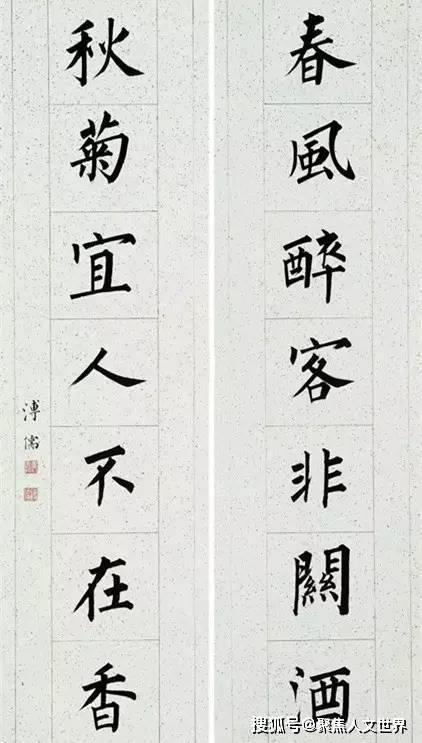 春風醉客非關酒
秋菊宜人不在香
溥儒
搜狐号@聚焦人文世界